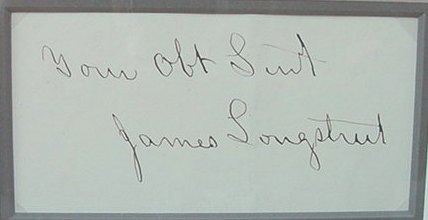 Your Obt Svt
James Longstreet